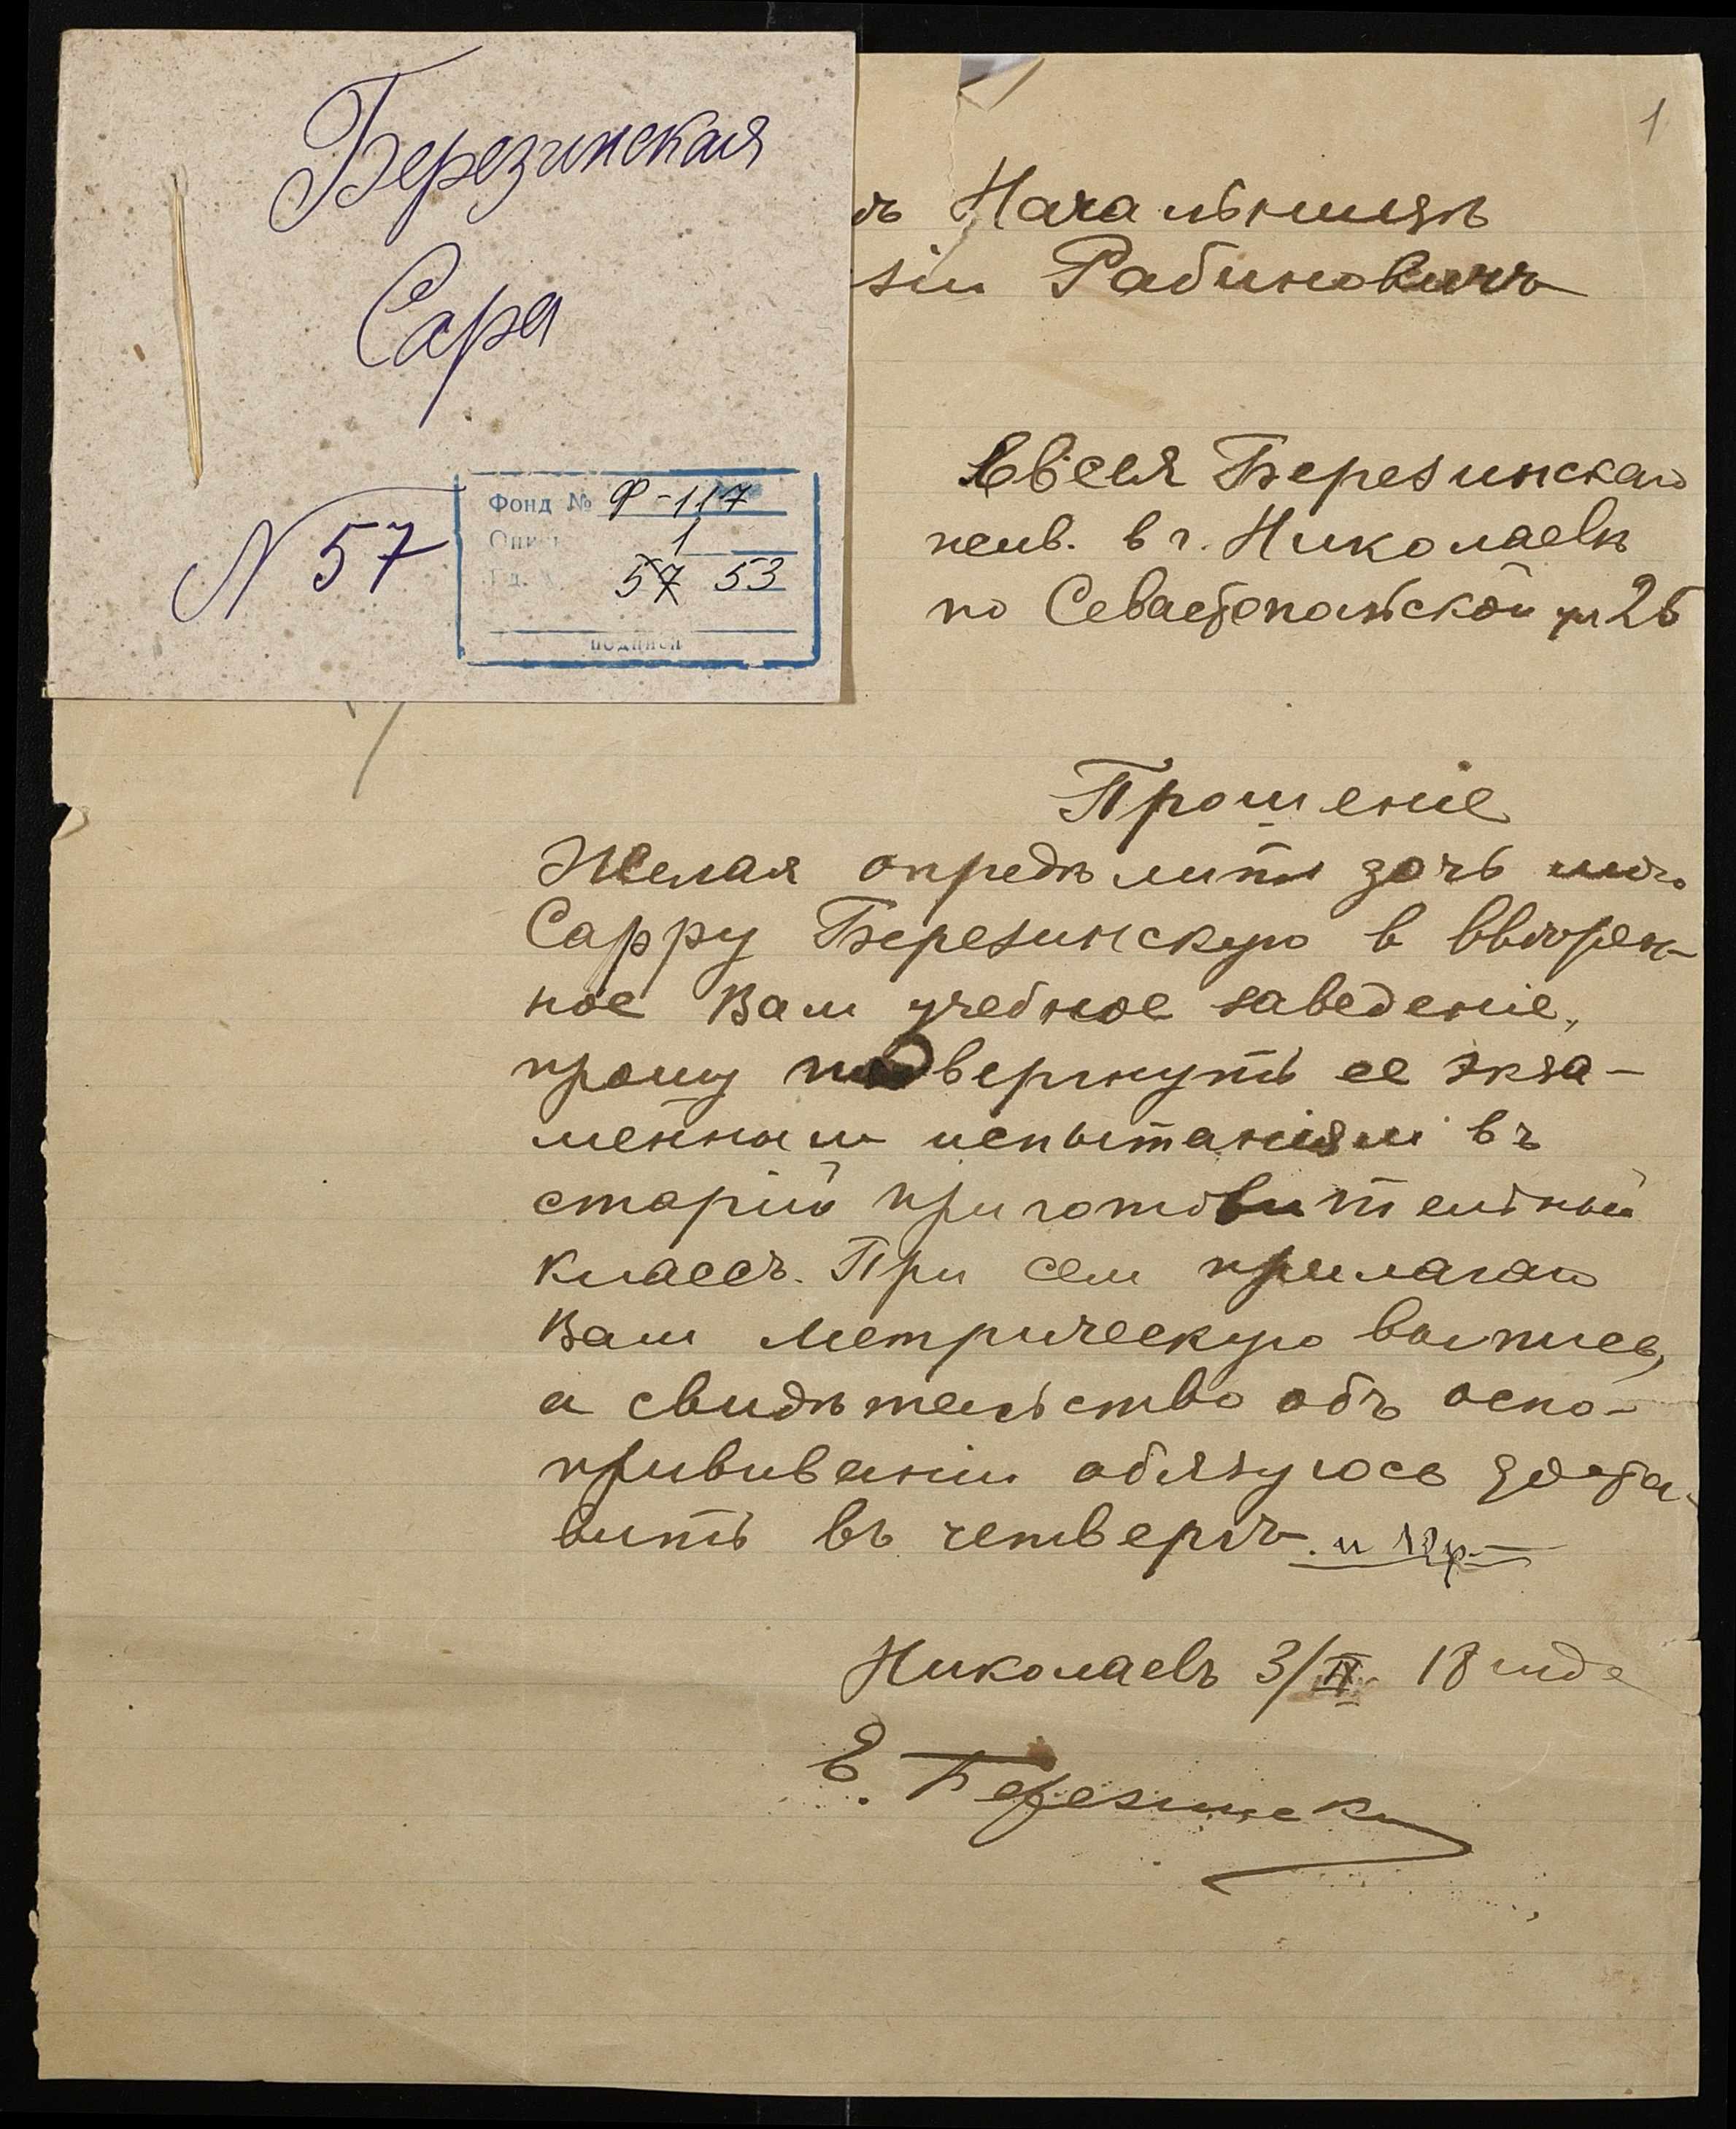 Березинская
Сара
N 57
Фонд № Ф-117
1
57 53
подписи
1
Начальницѣ
зіи Рабиновичъ
Евсея Березинскаго
жив. в г. Николаевѣ
по Севастопольской ул 25
Прошеніе
Желая опредѣлить дочь мою
Сарру Березинскую в ввѣрен-
ное Вам учебное заведеніе,
прошу подвергнуть ее экза-
менным испытаніям въ
старшій приготовительный
классъ. При сем прилагаю
Вам метрическую выпись,
а свидѣтельство объ оспо-
прививаніи обязуюсь доста-
вить въ четвергъ. и
Николаевъ 3/IX 18 года
Е. Березинский